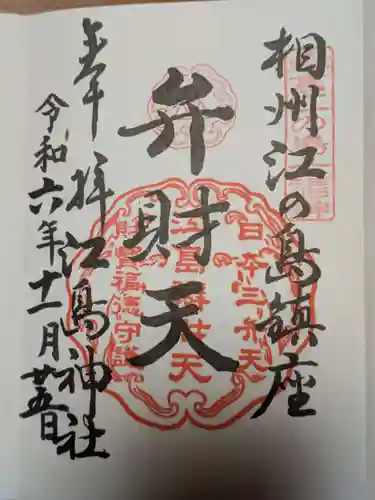 相州江の島鎮座
弁財天
奉拝 江島神社
令和六年十一月廿五日
日本三弁天
江島辯財天
財寶福徳守護